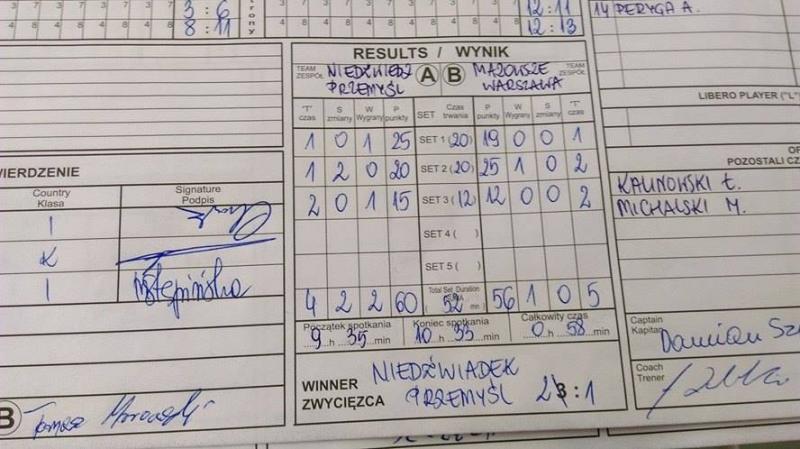 3 : 6
8 : 11
12 : 11
12 : 13
14 PERYGA A.
RESULTS / WYNIK
TEAM ZESPÓŁ NIEDŹWIEDŹ PRZEMYŚL A B MAZOWSZE WARSZAWA TEAM ZESPÓŁ
"T" czas S zmiany W Wygrany P punkty SET Czas trwania P punkty W Wygrany S zmiany "T" czas
1 0 1 25 SET 1 (20) 19 0 0 1
1 2 0 20 SET 2 (20) 25 1 0 2
2 0 1 15 SET 3 (12) 12 0 0 2
SET 4 ( )
SET 5 ( )
4 2 2 60 Total Set Duration ( 52 min ) 56 1 0 5
Początek spotkania Koniec spotkania Całkowity czas
9 h 35 min 10 h 33 min 0 h 58 min
WINNER
ZWYCIĘZCA
NIEDŹWIADEK
PRZEMYŚL 2 : 1
WIERDZENIE
Country Klasa Signature Podpis
I
K
I
B
LIBERO PLAYER ("L")
POZOSTALI
KALINOWSKI Ł.
MICHALSKI M.
Captain
Kapitan
Damian
Coach
Trener